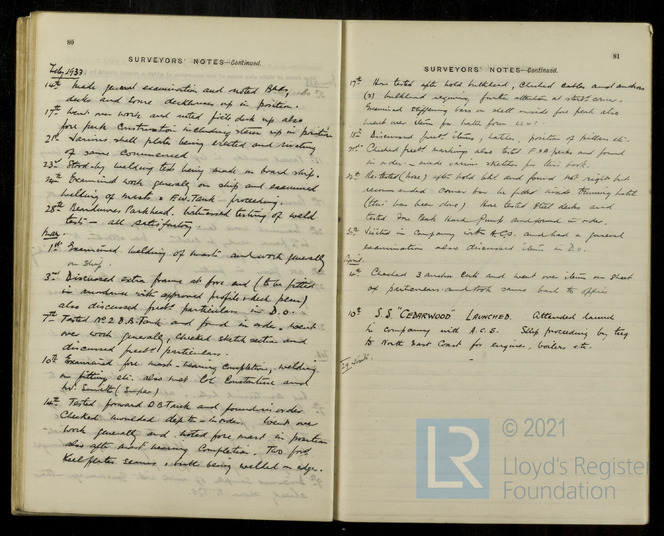 80
SURVEYORS' NOTES—Continued.
Feby 1937
14th Made general examination and noted Bhds,
decks and some deckhouses up in position.
17th Went over work and noted fo'cle deck up also
fore peak Construction including stem up in position
21st Various shell plates being erected and riveting
of same commenced
23rd Stood-by welding test being made on board ship.
24th Examined work generally on ship and examined
welding of masts & F.W. Tank - proceeding.
28th Beardmores Parkhead. Witnessed testing of weld
tests - all satisfactory
Mar.
1st Examined welding of masts and work generally
on ship.
3rd Discussed extra frames at fore end (to be fitted
in accordance with approved profile & deck plan)
also discussed freebd particulars in D.O.
7th Tested No 2 D.B. Tank and found in order, went
over work generally, checked sketch section and
discussed freebd particulars.
10th Examined fore mast - nearing completion, welding
on fitting etc. also met Col Constantine and
Mr Smith (Super)
14th Tested forward D.B Tank and found in order
Checked moulded depth - in order. Went over
work generally and noted fore mast in position
also aft mast nearing Completion. Two
Keel plates seams & butts being welded on edge.
81
SURVEYORS' NOTES—Continued.
17th Hose tested aft hold bulkhead, Checked cables and anchors
bulkhead requiring further attention at
Examined stiffening bars on shell inside fore peak also
went over items for
18th Discussed freebd items, hatches, position of pillars etc.
21st Checked freebd markings also tested F. & A peaks and found
in order - made various sketches for this book.
Re-tested (hose) aft hold bhd and found not right but
recommended corner bar be fitted inside
(this has been done) Hose tested steel decks and
tested Hand Pump and found in order.
Visited in Company with A.C.S. and had a general
examination also discussed items in D.O.
April.
4th Checked 3 anchor Certs and went over items on sheet
of particulars and took same back to office
10th S.S "CEDARWOOD" LAUNCHED. Attended launch
in company with A.C.S. Ship proceeding by tug
to North East Coast for engines, boilers etc.
29 visits.
LR
© 2021
Lloyd's Register
Foundation